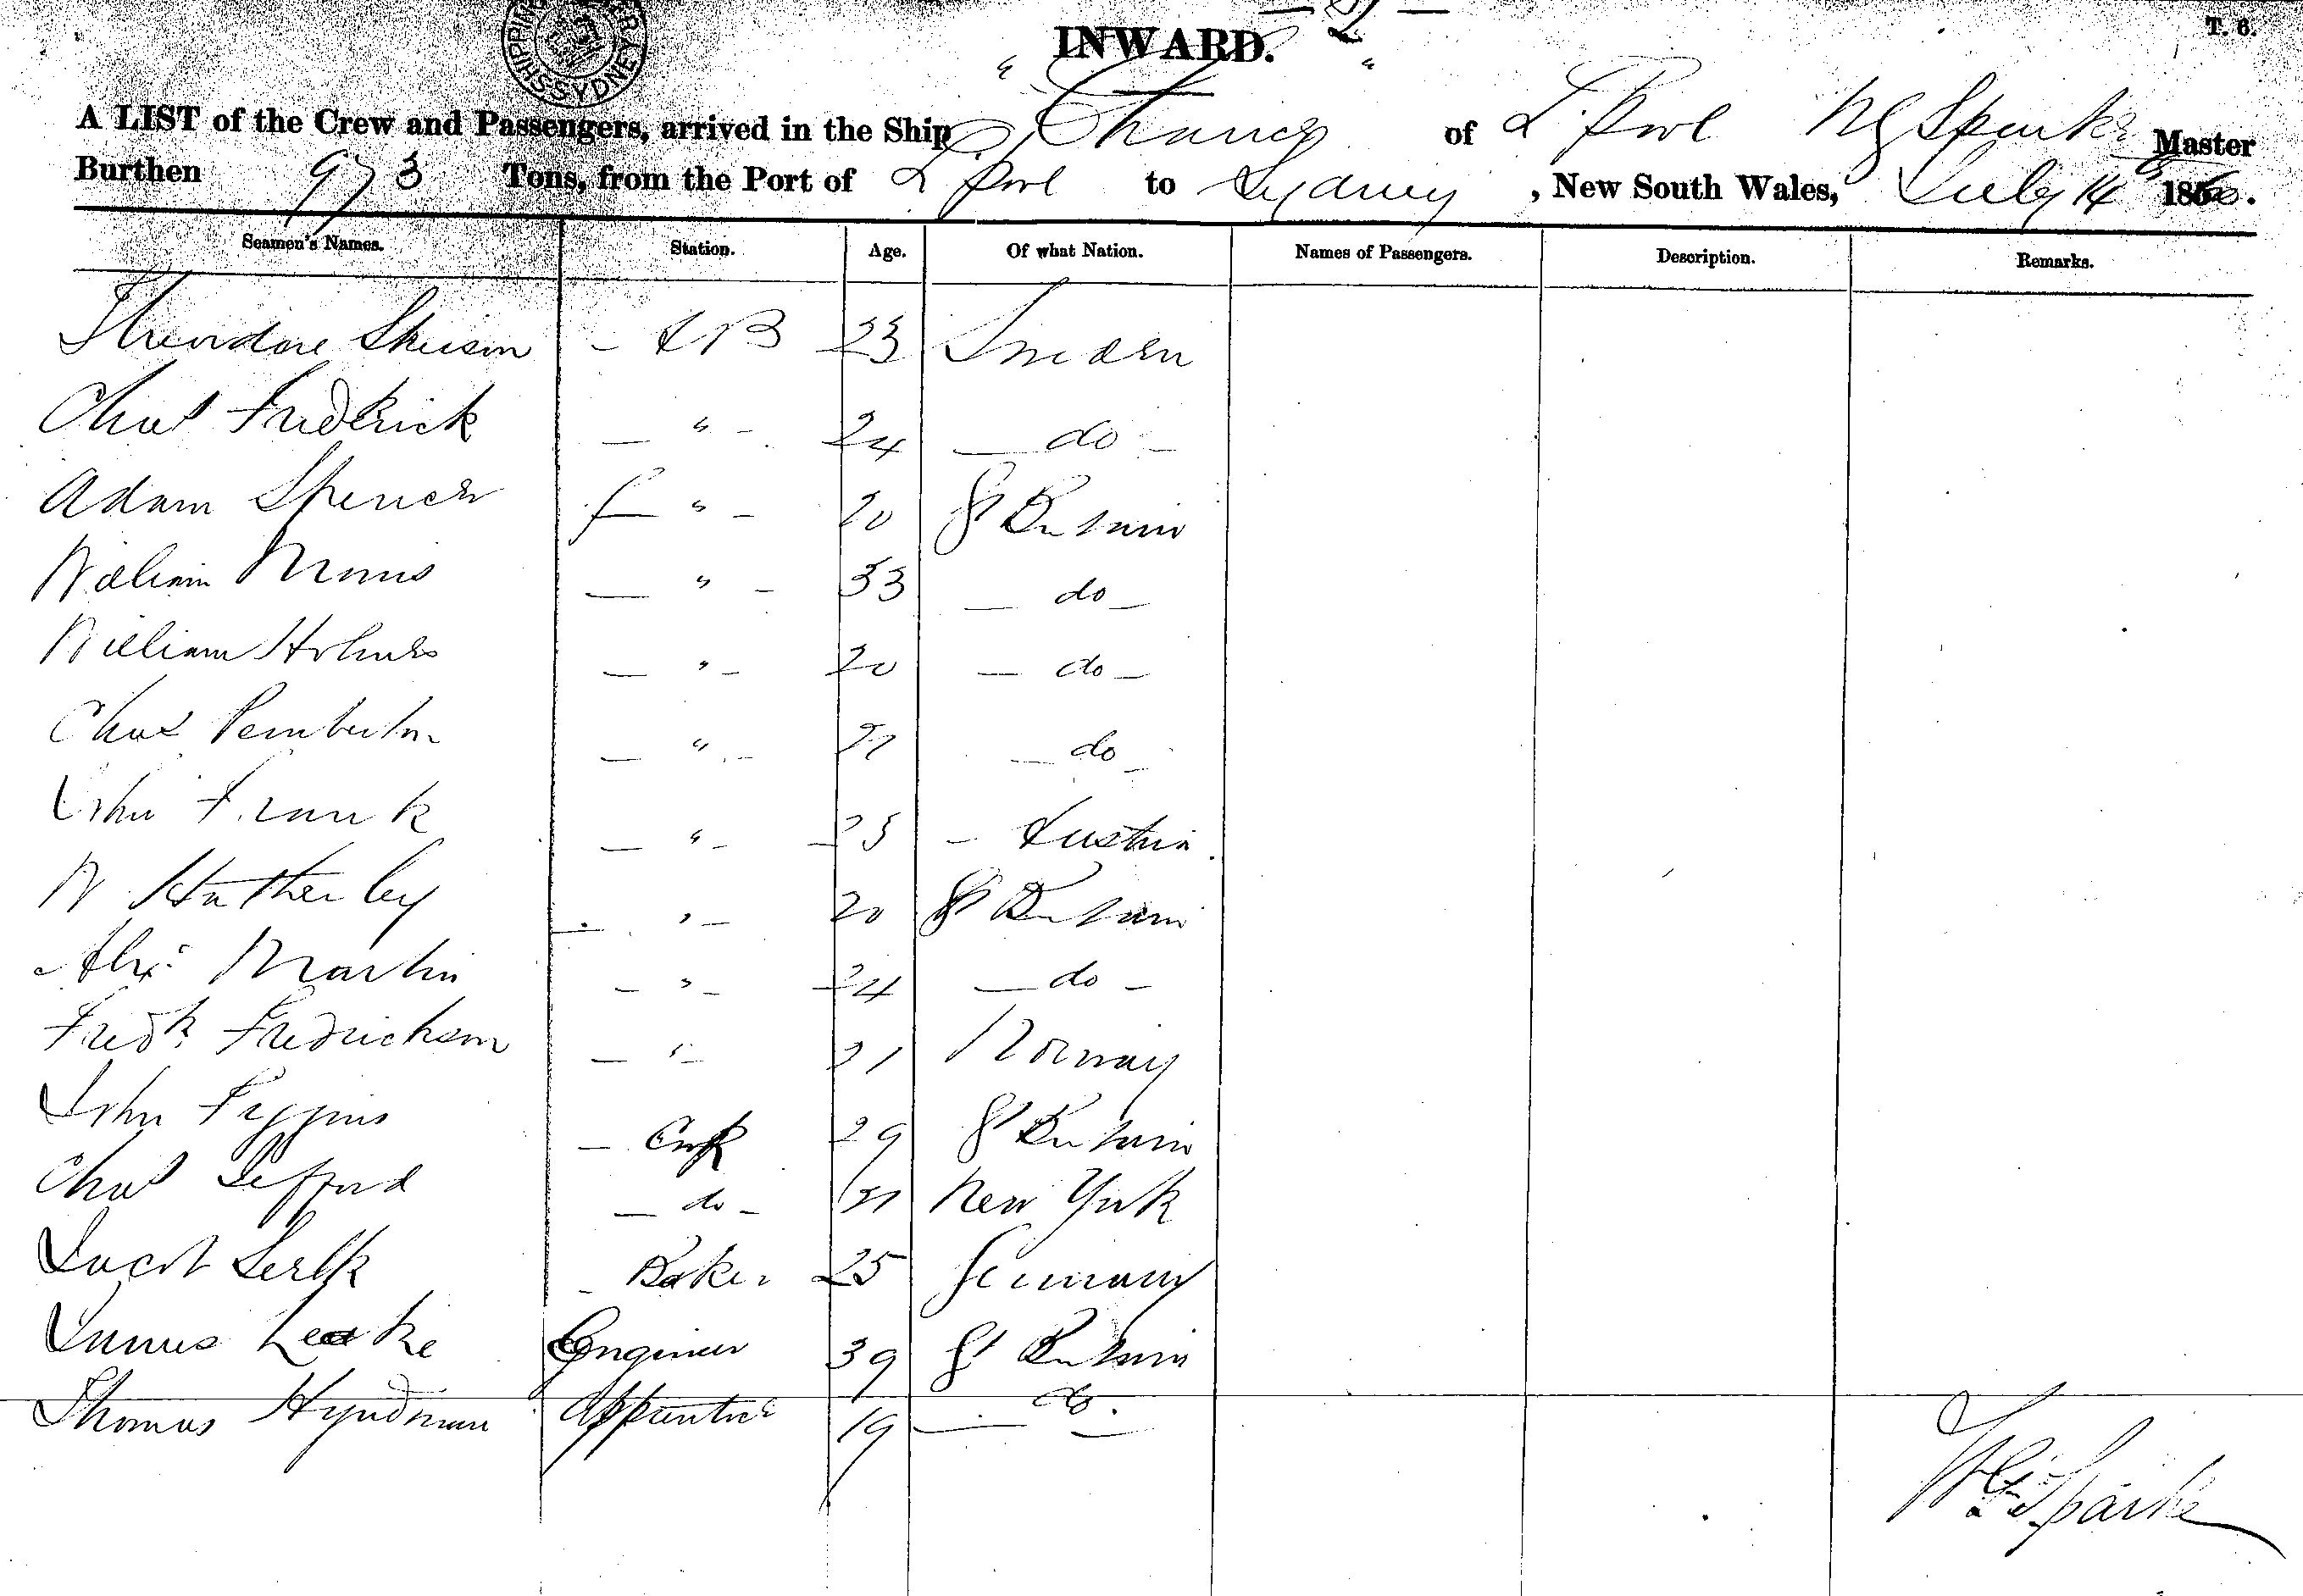 — 2 —
INWARD.
T. 6.
A LIST of the Crew and Passengers, arrived in the Ship "Chance" of L. Pool W G Sparke Master
Burthen 973 Tons, from the Port of L. Pool to Sydney, New South Wales, July 14 186
Seamen's Names. Station. Age. Of what Nation. Names of Passengers. Description. Remarks.
Theodore — A B 23 Sweden
Chas Frederick — " — 24 — do —
Adam Spencer " — 20 Gt Britain
William Morris — " — 33 — do —
William Holmes — " — 20 — do —
Chas Pemberton — " — — do —
John Frank — " — 25 — Austria.
W Hatherley — " — 20 Gt Britain
Alexr Martin — " — 24 — do —
Fredk Fredrickson — " — 21 Norway
John Figgins — Cook 29 Gt Britain
Chas Lefford — do — New York
Jacob — Baker 25 Germany
James Leake Engineer 39 Gt Britain
Thomas Hyndman Apprentice 19 — do. —
W G Sparke